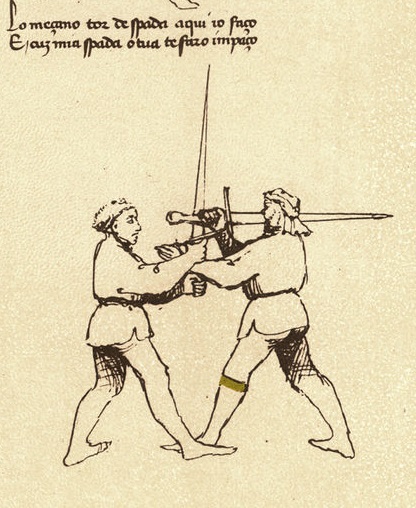 Lo meçano tor de spada aqui io faço
E cuz mia spada o tua te faro impaço